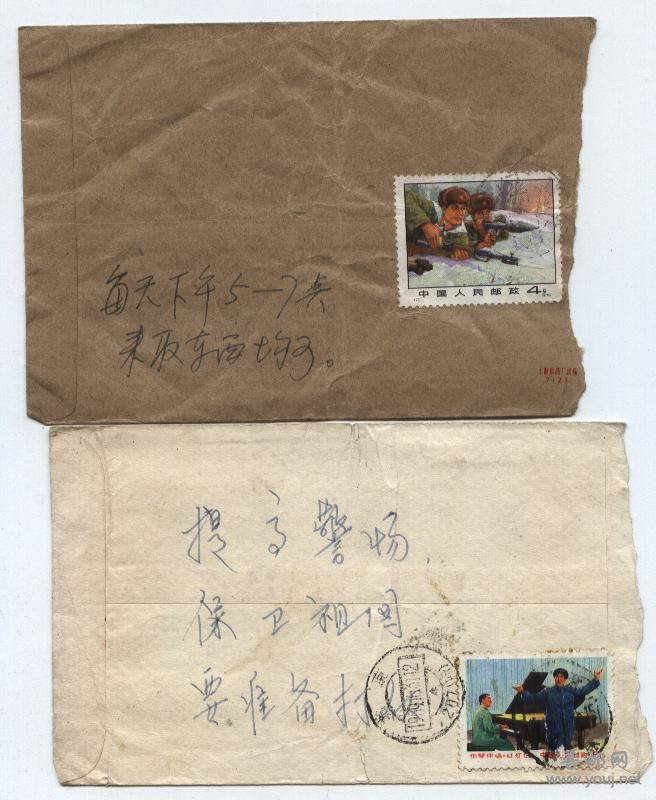 每天下午5—7点
来取东西均可。
中国人民邮政 4分
7121
提高警惕,
保卫祖国
要准备打仗
钢琴伴唱《红灯记》
www.youj.net